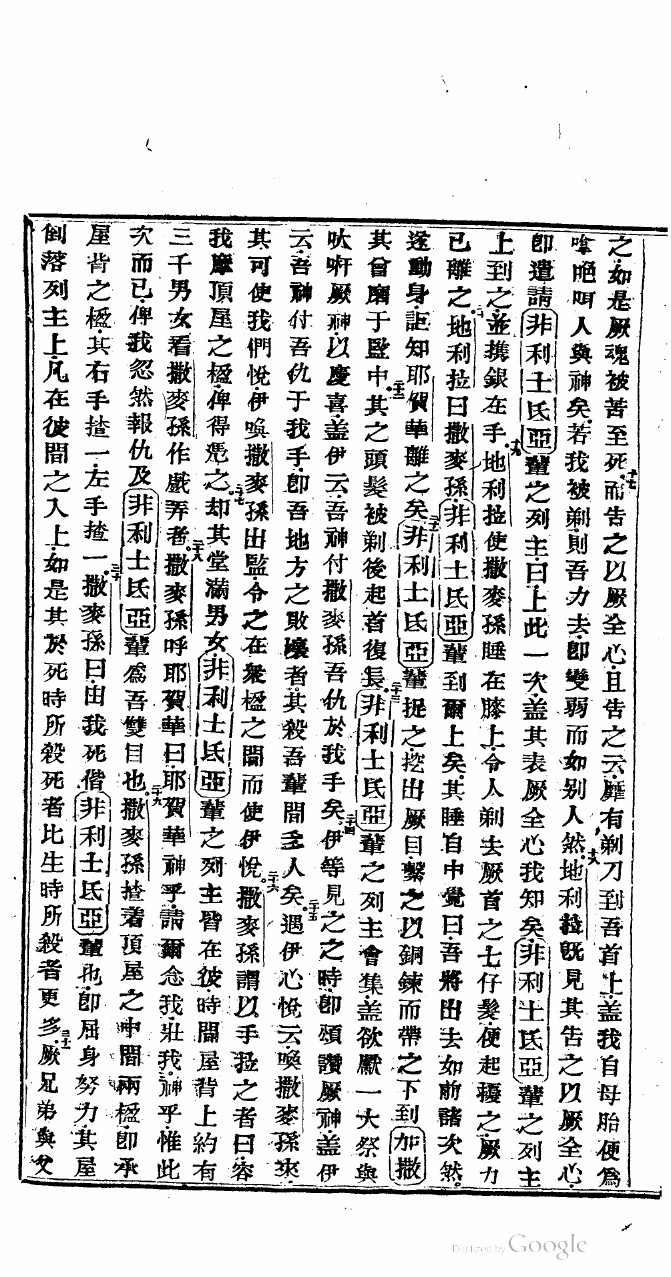 之如是厥魂被苦至死十七而告之以厥全心且告之云靡有剃刀到吾首上蓋我自母胎便爲
嗱唎人與神矣若我被剃則吾力去卽變弱而如别人然十八地利拉旣見其告之以厥全心
卽遣請非利士氐亞輩之列主曰上此一次蓋其表厥全心我知矣非利士氐亞輩之列主
上到之並携銀在手十九地利拉使撒麥孫睡在膝上令人剃去厥首之七仔髮便起擾之厥力
已離之地利拉曰撒麥孫非利士氐亞輩到爾上矣其睡自中覺曰吾將出去如前諸次然
遂動身詎知耶賀華離之矣非利士氐亞輩捉之挖出厥目繫之以銅鍊而帶之下到加撒
其曾磨于監中二十二其之頭髮被剃後起首復長二十三非利士氐亞輩之列主會集蓋欲厭一大祭與
吠厥神以慶喜蓋伊云吾神付撒麥孫吾仇於我手矣二十四伊等見之之時卽頌讚厥神蓋伊
云吾神付吾仇于我手卽吾地方之敗壞者其殺吾輩間多人矣二十五遇伊心悅云喚撒麥孫來
其可使我們悅伊喚撒麥孫出監令之在衆楹之間而使伊悅二十六撒麥孫謂以手拉之者曰容
我摩頂屋之楹俾得凴之二十七却其堂滿男女非利士氐亞輩之列主皆在彼時間屋背上約有
三千男女看撒麥孫作戲弄者二十八撒麥孫呼耶賀華曰耶賀華神乎請爾念我壯我神乎惟此
次而已俾我忽然報仇及非利士氐亞輩爲吾雙目也二十九撒麥孫揸着頂屋之中間兩楹卽承
屋背之楹其右手揸一左手揸一三十撒麥孫曰由我死偕非利士氐亞輩也卽屈身努力其屋
倒落列主上凡在彼間之人上如是其於死時所殺死者比生時所殺者更多三十一厥兄弟與父
Digitized by Google